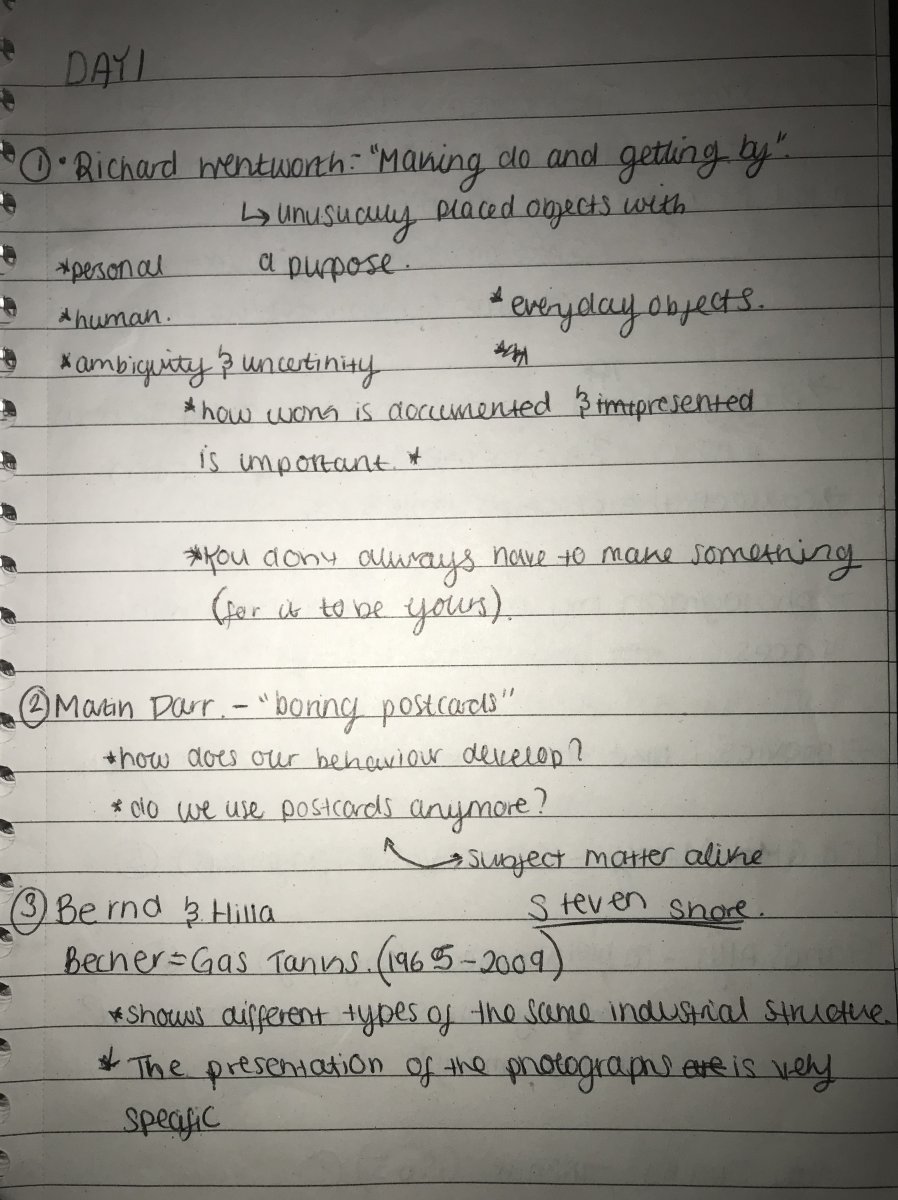 DAY 1
① • Richard Wentworth - "Making do and getting by".
↳ unusually placed objects with
*personal a purpose.
*human. *everyday objects.
*ambiguity & uncertinity
*how work is documented & presented
is important. *
*You dont always have to make something
(for it to be yours).
② Martin Parr. - "boring postcards"
*how does our behaviour develop?
*do we use postcards anymore?
→ subject matter alike
③ Bernd & Hilla Steven Shore.
Becher = Gas Tanks. (1965-2009)
*shows different types of the same industrial structure.
* The presentation of the photographs are is very
specific